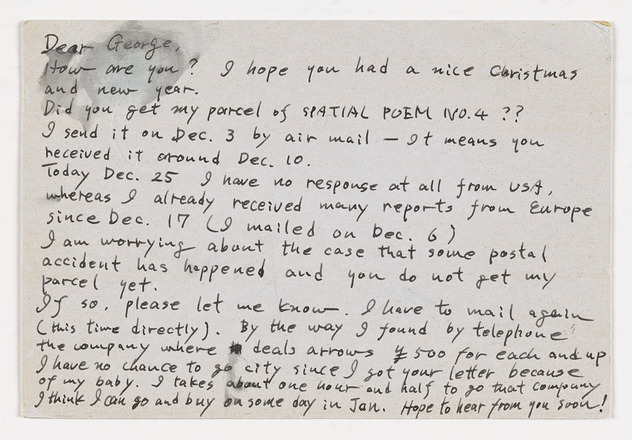 Dear George,
How are you? I hope you had a nice Christmas
and new year.
Did you get my parcel of SPATIAL POEM NO.4 ??
I send it on Dec. 3 by air mail — It means you
received it around Dec. 10.
Today Dec. 25 I have no response at all from USA,
whereas I already received many reports from Europe
since Dec. 17 (I mailed on Dec. 6)
I am worrying about the case that some postal
accident has happened and you do not get my
parcel yet.
If so, please let me know. I have to mail again
(this time directly). By the way I found by telephone
the company where deals arrows ¥ 500 for each and up
I have no chance to go city since I got your letter because
of my baby. I takes about one hour and half to go that company
I think I can go and buy on some day in Jan. Hope to hear from you soon!